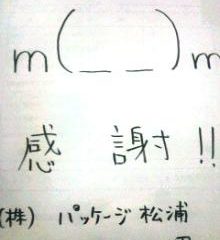 m(_ _)m
感 謝 !!
(株) パッケージ松浦